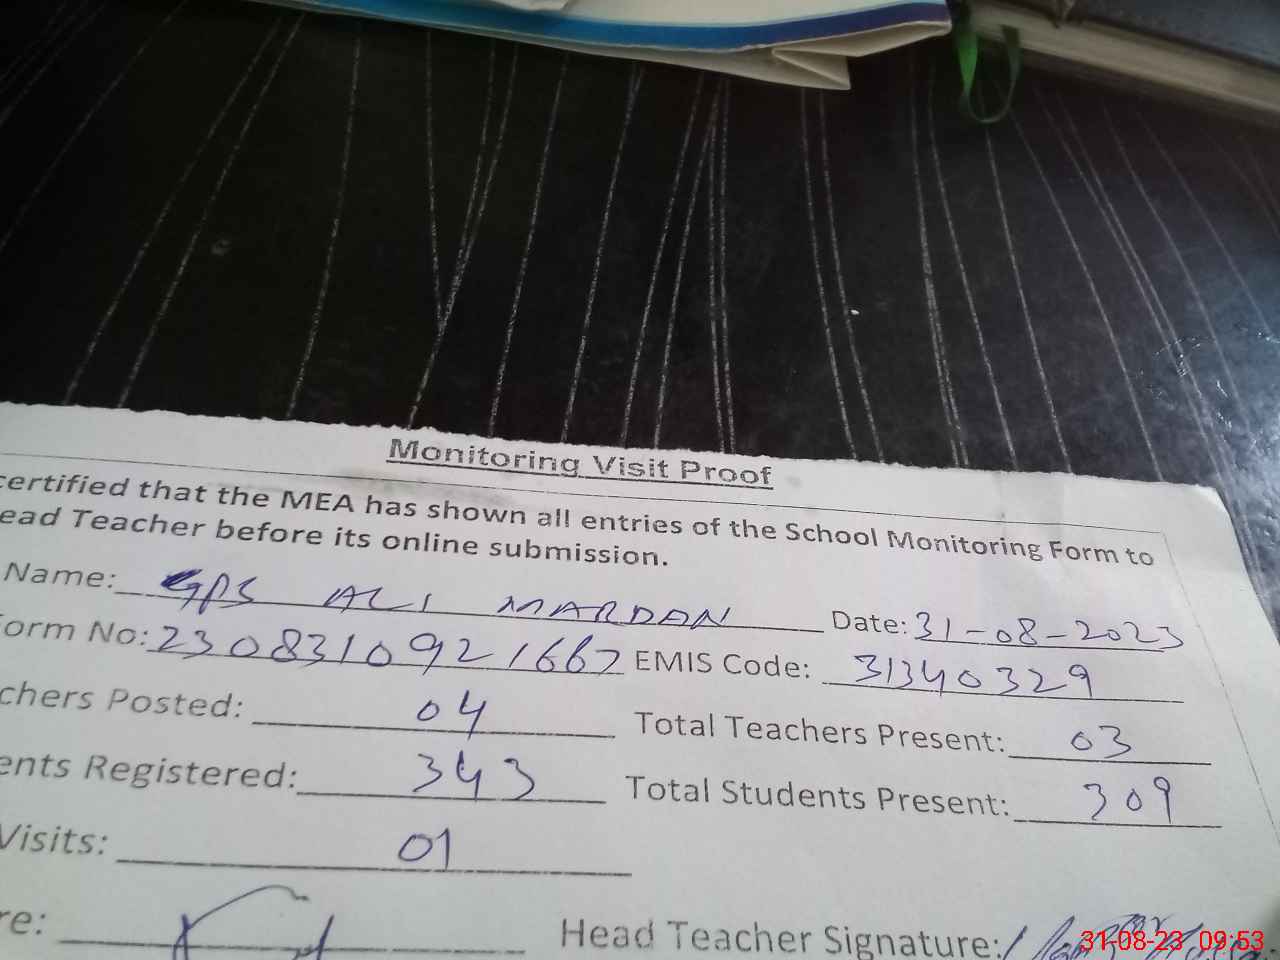 Monitoring Visit Proof
certified that the MEA has shown all entries of the School Monitoring Form to
ead Teacher before its online submission.
Name: GPS ALI MARDAN Date: 31-08-2023
orm No: 2308310921667 EMIS Code: 31340329
chers Posted: 04 Total Teachers Present: 03
ents Registered: 343 Total Students Present: 309
Visits: 01
re: Head Teacher Signature:
31-08-23 09:53